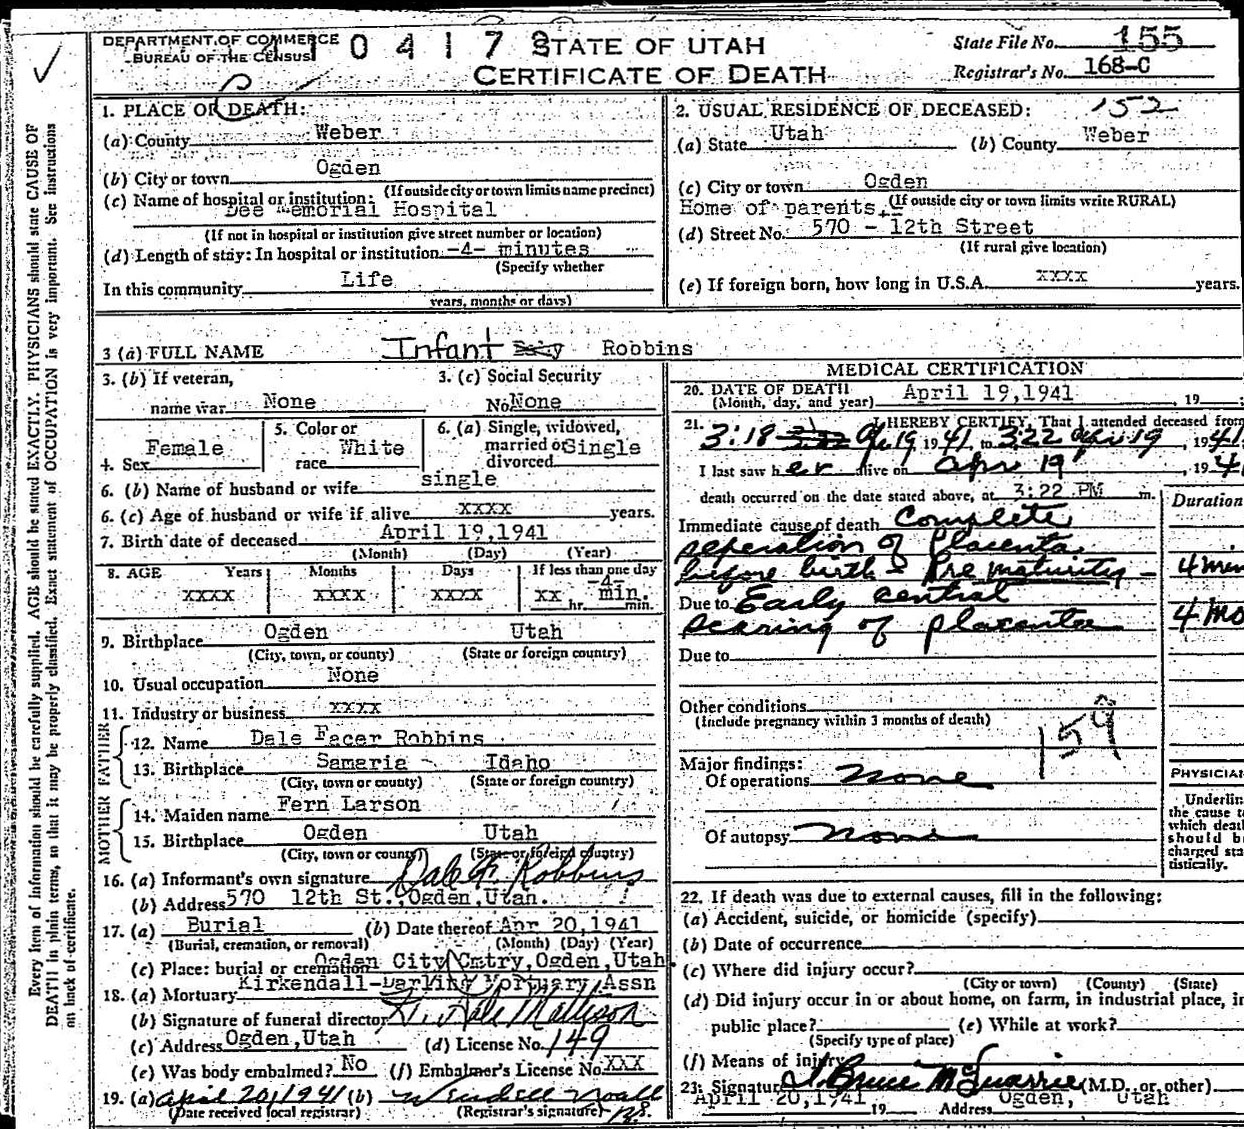 DEPARTMENT OF COMMERCE
BUREAU OF THE CENSUS
STATE OF UTAH
CERTIFICATE OF DEATH
State File No. 155
Registrar's No. 168-C
1. PLACE OF DEATH:
(a) County Weber
(b) City or town Ogden
(If outside city or town limits name precinct)
(c) Name of hospital or institution:
Dee Memorial Hospital
(If not in hospital or institution give street number or location)
(d) Length of stay: In hospital or institution -4- minutes
(Specify whether
In this community Life
years, months or days)
2. USUAL RESIDENCE OF DECEASED: 152
(a) State Utah (b) County Weber
(c) City or town Ogden
(If outside city or town limits write RURAL)
Home of parents,
(d) Street No. 570 - 12th Street
(If rural give location)
(e) If foreign born, how long in U.S.A. xxxx years.
3 (a) FULL NAME Infant Baby Robbins
3. (b) If veteran,
name war None
3. (c) Social Security
No. None
4. Sex Female
5. Color or
race White
6. (a) Single, widowed,
married or Single
divorced
6. (b) Name of husband or wife single
6. (c) Age of husband or wife if alive xxxx years.
7. Birth date of deceased April 19,1941
(Month) (Day) (Year)
8. AGE Years Months Days If less than one day
-4-
xxxx xxxx xxxx xx hr. min. min.
9. Birthplace Ogden Utah
(City, town, or county) (State or foreign country)
10. Usual occupation None
11. Industry or business xxxx
FATHER
12. Name Dale Facer Robbins
13. Birthplace Samaria - Idaho
(City, town or county) (State or foreign country)
MOTHER
14. Maiden name Fern Larson
15. Birthplace Ogden Utah
(City, town or county) (State or foreign country)
16. (a) Informant's own signature Dale F. Robbins
(b) Address 570 12th St., Ogden,Utah.
17. (a) Burial (b) Date thereof Apr 20,1941
(Burial, cremation, or removal) (Month) (Day) (Year)
(c) Place: burial or cremation Ogden City Cmtry,Ogden,Utah
18. (a) Mortuary Kirkendall-Darling Mortuary Assn
(b) Signature of funeral director
(c) Address Ogden,Utah (d) License No. 149
(e) Was body embalmed? No (f) Embalmer's License No. XXX
19. (a) April 20,1941 (b) Wendell Noall
(Date received local registrar) (Registrar's signature)
MEDICAL CERTIFICATION
20. DATE OF DEATH April 19,1941
(Month, day, and year) , 19
21. I HEREBY CERTIFY, That I attended deceased from
3:18 Ap 19, 1941, to 3:22 Apr 19, 1941.
I last saw her alive on Apr 19, 194
death occurred on the date stated above, at 3:22 PM m.
Duration
Immediate cause of death Complete
seperation of Placenta
before birth - Prematurity - 4 min
Due to Early central
tearing of placenta 4 mo
Due to
Other conditions
(Include pregnancy within 3 months of death)
159
Major findings:
Of operations none
Of autopsy none
PHYSICIAN
Underlin
the cause t
which death
should b
charged sta
tistically.
22. If death was due to external causes, fill in the following:
(a) Accident, suicide, or homicide (specify)
(b) Date of occurrence
(c) Where did injury occur?
(City or town) (County) (State)
(d) Did injury occur in or about home, on farm, in industrial place, in
public place? (e) While at work?
(Specify type of place)
(f) Means of injury
23. Signature J. Bruce McQuarrie (M.D. or other)
April 20,1941 19 Address Ogden, Utah
Every item of information should be carefully supplied. AGE should be stated EXACTLY. PHYSICIANS should state CAUSE OF
DEATH in plain terms, so that it may be properly classified. Exact statement of OCCUPATION is very important. See instructions
on back of certificate.